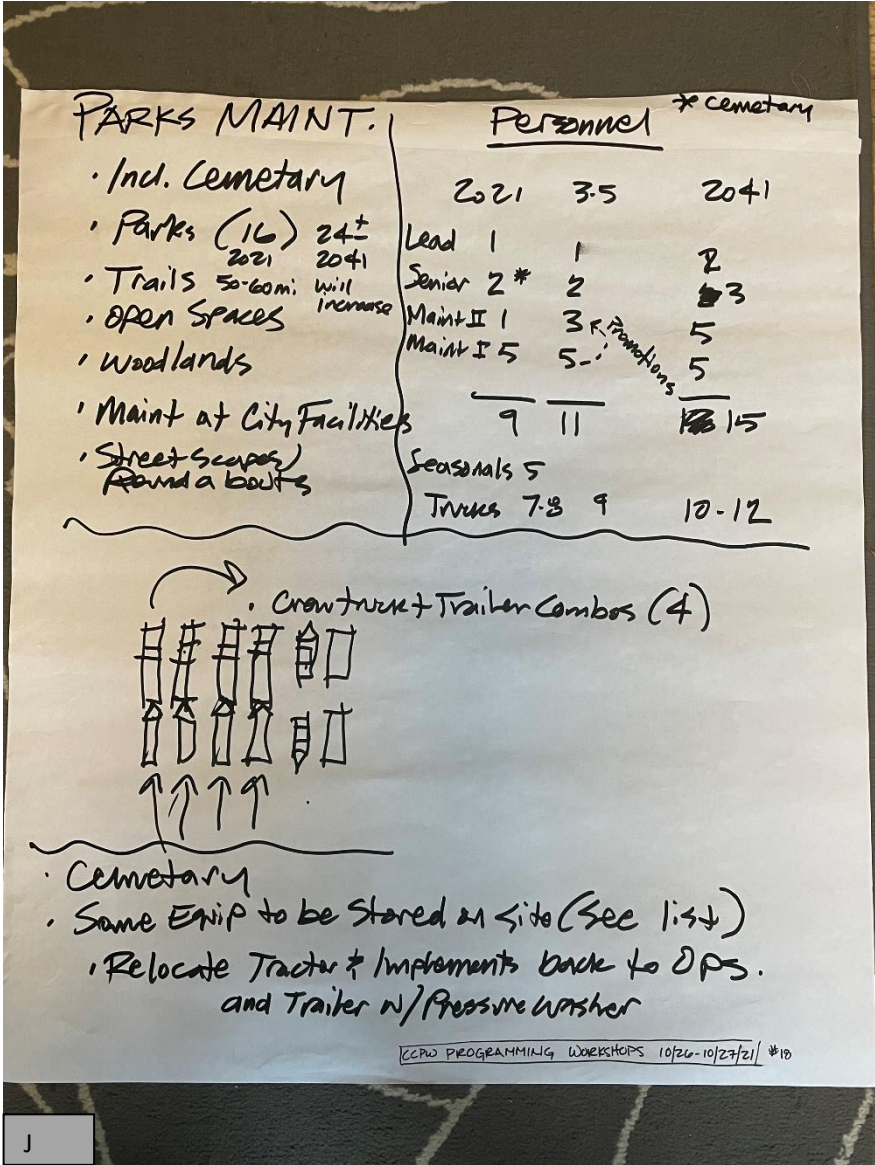 PARKS MAINT.
· Incl. Cemetary
· Parks (16) 24±
2021 2041
· Trails 50-60mi will increase
· Open Spaces
· Woodlands
· Maint at City Facilities
· Streetscapes/
Roundabouts
* Cemetary
Personnel
2021 3-5 2041
Lead 1 1 2
Senior 2* 2 3
Maint II 1 3 5
Promotions
Maint I 5 5 5
9 11 15
Seasonals 5
Trucks 7-8 9 10-12
· Crewtruck + Trailer Combos (4)
· Cemetary
· Some Equip to be Stored on site (See list)
· Relocate Tractor & Implements back to Ops.
and Trailer w/ Pressure washer
CCPW PROGRAMMING WORKSHOPS 10/26-10/27/21 #18
J